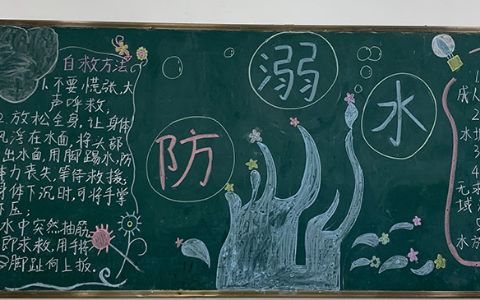 自救方法
1.不要慌张,大
声呼救。
2.放松全身,让身体
飘浮在水面,将头部
出水面,用脚踢水,防
体力丧失,等待救援。
身体下沉时,可将手掌
下压。
水中突然抽筋,
即求救,用手将
脚趾向上扳。
防溺水
成人
2
水
无
域
5
水方